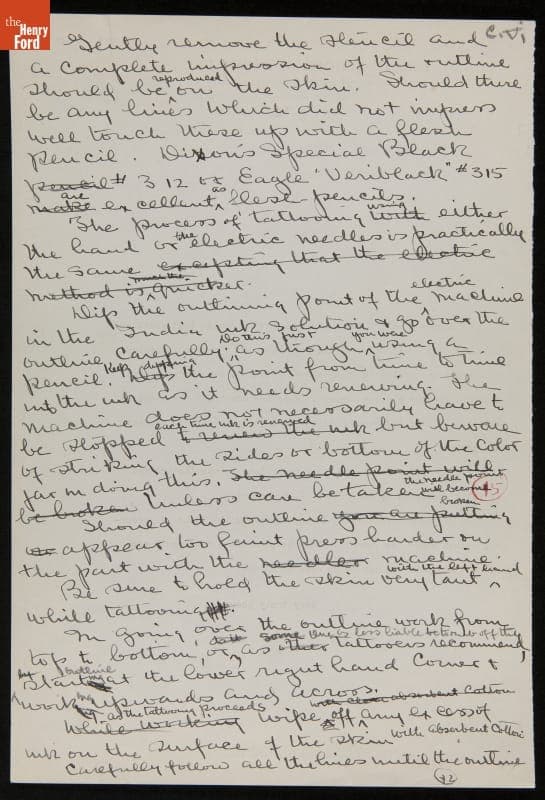 the
Henry
Ford
C.V.
Gently remove the stencil and
a complete impression of the outline
should be reproduced on the skin. Should there
be any lines which did not impress
well touch these up with a flesh
pencil. Dixon's Special Black
pencil # 312 or Eagle "Veriblack" #315
make are excellant as flesh pencils.
The process of tattooing with using either
the hand or the electric needles is practically
the same excepting that the electric
method is much the quicker.
Dip the outlining point of the electric machine
in the India ink solution & go over the
outline carefully, Do this just as though you were using a
pencil. Keep dipping the point from time to time
into the ink as it needs renewing. The
machine does not necessarily have to
be stopped each time ink is renewed to renew the ink but beware
of striking the sides or bottom of the color
jar in doing this. The needle point will
be broken unless care be taken the needle point will become broken
45
Should the outline you are putting
on appear too faint press harder on
the part with the needles machine.
Be sure to hold the skin very taut with the left hand
while tattooing.
In going over the outline work from
top to bottom, or, as other tattooers recommend
start outline at the lower right hand corner &
work upwards and across.
with clean absorbent cotton
While working as the tattooing proceeds wipe off any excess of
ink on the surface of the skin with absorbent cotton
Carefully follow all the lines until the outline
42